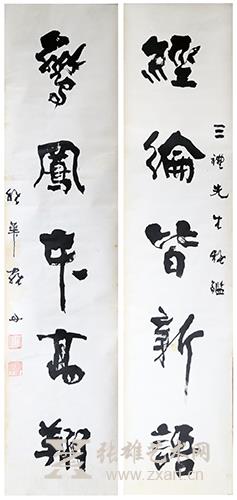 經綸皆新語
三禮先生雅鑑
鸞鳳本高翔
张雄艺术网
www.zxart.cn